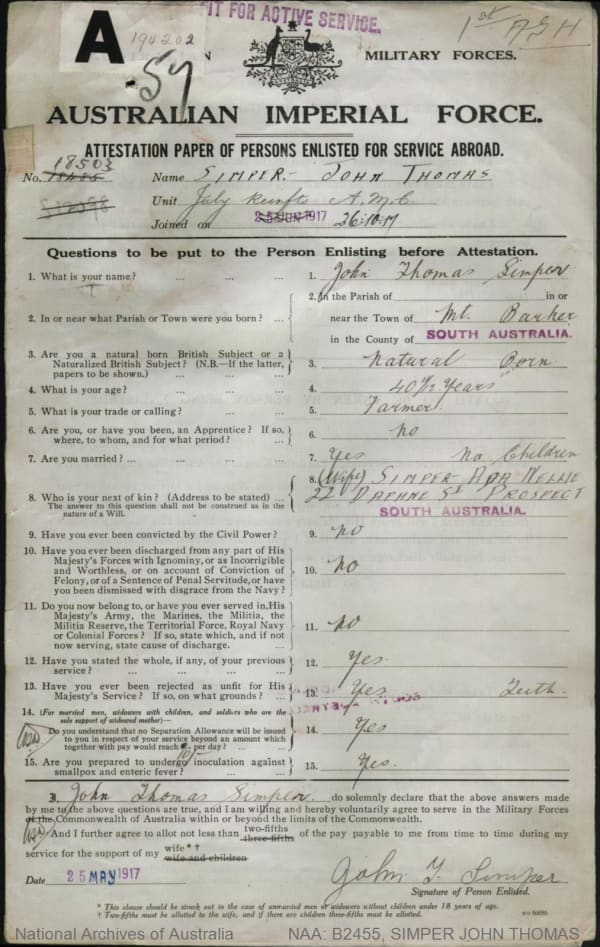 FIT FOR ACTIVE SERVICE.
1st AGH
A
194202
57
MILITARY FORCES.
AUSTRALIA
AUSTRALIAN IMPERIAL FORCE.
ATTESTATION PAPER OF PERSONS ENLISTED FOR SERVICE ABROAD.
18503
No. 18485 Name SIMPER - JOHN THOMAS
Unit July Reinfts A.M.C.
Joined on 25 JUN 1917 26.10.17
Questions to be put to the Person Enlisting before Attestation.
1. What is your name? ... ... ... 1. John Thomas Simper
2. In or near what Parish or Town were you born? ... 2. In the Parish of in or
near the Town of Mt. Barker
in the County of SOUTH AUSTRALIA.
3. Are you a natural born British Subject or a
Naturalized British Subject? (N.B.—If the latter,
papers to be shown.) ... ... 3. Natural Born
4. What is your age? ... ... ... 4. 40 1/2 Years
5. What is your trade or calling? ... ... 5. Farmer.
6. Are you, or have you been, an Apprentice? If so,
where, to whom, and for what period? ... 6. No
7. Are you married? ... ... ... ... 7. Yes No Children
8. Who is your next of kin? (Address to be stated) ... 8. (Wife) SIMPER - ADA NELLIE
The answer to this question shall not be construed as in the
nature of a Will. 22 DAPHNE St PROSPECT
SOUTH AUSTRALIA.
9. Have you ever been convicted by the Civil Power? 9. No
10. Have you ever been discharged from any part of His
Majesty's Forces with Ignominy, or as Incorrigible
and Worthless, or on account of Conviction of
Felony, or of a Sentence of Penal Servitude, or have
you been dismissed with disgrace from the Navy? 10. No
11. Do you now belong to, or have you ever served in, His
Majesty's Army, the Marines, the Militia, the
Militia Reserve, the Territorial Force, Royal Navy
or Colonial Forces? If so, state which, and if not
now serving, state cause of discharge. ... 11. No
12. Have you stated the whole, if any, of your previous
service? ... ... ... ... 12. Yes.
13. Have you ever been rejected as unfit for His
Majesty's Service? If so, on what grounds? ... 13. Yes Teeth.
14. (For married men, widowers with children, and soldiers who are the
sole support of widowed mother)—
Do you understand that no Separation Allowance will be issued
to you in respect of your service beyond an amount which
together with pay would reach 10/- per day? ... 14. Yes
15. Are you prepared to undergo inoculation against
smallpox and enteric fever? ... ... 15. Yes.
I, John Thomas Simper do solemnly declare that the above answers made
by me to the above questions are true, and I am willing and hereby voluntarily agree to serve in the Military Forces
of the Commonwealth of Australia within or beyond the limits of the Commonwealth.
And I further agree to allot not less than two-fifths three-fifths of the pay payable to me from time to time during my
service for the support of my wife*† wife and children
Date 25 MAY 1917 John T. Simper
Signature of Person Enlisted.
* This clause should be struck out in the case of unmarried men or widowers without children under 18 years of age.
† Two-fifths must be allotted to the wife, and if there are children three-fifths must be allotted.
National Archives of Australia NAA: B2455, SIMPER JOHN THOMAS